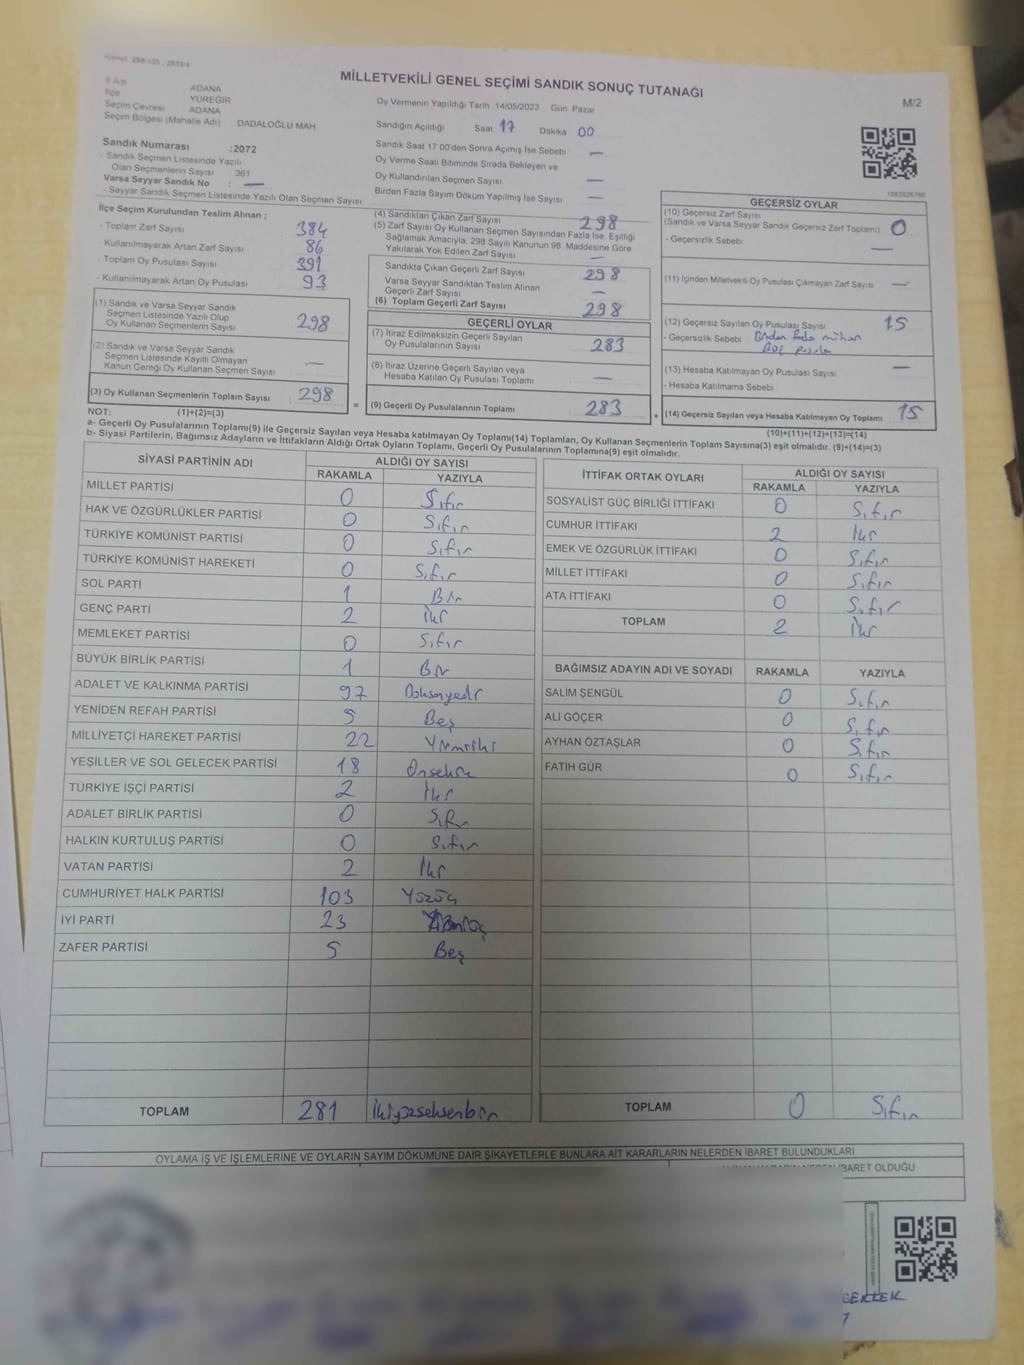 MİLLETVEKİLİ GENEL SEÇİMİ SANDIK SONUÇ TUTANAĞI
M/2
İl Adı ADANA
İlçe YÜREĞİR
Seçim Çevresi ADANA
Seçim Bölgesi (Mahalle Adı) DADALOĞLU MAH
Sandık Numarası :2072
- Sandık Seçmen Listesinde Yazılı
Olan Seçmenlerin Sayısı 361
Varsa Seyyar Sandık No : —
- Seyyar Sandık Seçmen Listesinde Yazılı Olan Seçmen Sayısı
Oy Vermenin Yapıldığı Tarih 14/05/2023 Gün Pazar
Sandığın Açıldığı Saat 17 Dakika 00
Sandık Saat 17 00'den Sonra Açımış İse Sebebi —
Oy Verme Saati Bitiminde Sırada Bekleyen ve
Oy Kullandırılan Seçmen Sayısı —
Birden Fazla Sayım Döküm Yapılmış İse Sayısı —
İlçe Seçim Kurulundan Teslim Alınan ;
- Toplam Zarf Sayısı 384
- Kullanılmayarak Artan Zarf Sayısı 86
- Toplam Oy Pusulası Sayısı 391
- Kullanılmayarak Artan Oy Pusulası 93
(1) Sandık ve Varsa Seyyar Sandık
Seçmen Listesinde Yazılı Olup
Oy Kullanan Seçmenlerin Sayısı 298
(2) Sandık ve Varsa Seyyar Sandık
Seçmen Listesinde Kayıtlı Olmayan
Kanun Gereği Oy Kullanan Seçmen Sayısı —
(3) Oy Kullanan Seçmenlerin Toplam Sayısı 298
(4) Sandıktan Çıkan Zarf Sayısı 298
(5) Zarf Sayısı Oy Kullanan Seçmen Sayısından Fazla İse, Eşitliği
Sağlamak Amacıyla, 298 Sayılı Kanunun 98. Maddesine Göre
Yakılarak Yok Edilen Zarf Sayısı —
Sandıkta Çıkan Geçerli Zarf Sayısı 298
Varsa Seyyar Sandıktan Teslim Alınan
Geçerli Zarf Sayısı —
(6) Toplam Geçerli Zarf Sayısı 298
GEÇERLİ OYLAR
(7) İtiraz Edilmeksizin Geçerli Sayılan
Oy Pusulalarının Sayısı 283
(8) İtiraz Üzerine Geçerli Sayılan veya
Hesaba Katılan Oy Pusulası Toplamı —
= (9) Geçerli Oy Pusulalarının Toplamı 283
GEÇERSİZ OYLAR
(10) Geçersiz Zarf Sayısı
(Sandık ve Varsa Seyyar Sandık Geçersiz Zarf Toplamı) 0
- Geçersizlik Sebebi —
(11) İçinden Milletvekili Oy Pusulası Çıkmayan Zarf Sayısı —
(12) Geçersiz Sayılan Oy Pusulası Sayısı 15
- Geçersizlik Sebebi Birden fazla mühür
(13) Hesaba Katılmayan Oy Pusulası Sayısı —
- Hesaba Katılmama Sebebi
+ (14) Geçersiz Sayılan veya Hesaba Katılmayan Oy Toplamı 15
NOT: (1)+(2)=(3) (10)+(11)+(12)+(13)=(14)
a- Geçerli Oy Pusulalarının Toplamı(9) ile Geçersiz Sayılan veya Hesaba katılmayan Oy Toplamı(14) Toplamları, Oy Kullanan Seçmenlerin Toplam Sayısına(3) eşit olmalıdır. (9)+(14)=(3)
b- Siyasi Partilerin, Bağımsız Adayların ve İttifakların Aldığı Ortak Oyların Toplamı, Geçerli Oy Pusulalarının Toplamına(9) eşit olmalıdır.
SİYASİ PARTİNİN ADI ALDIĞI OY SAYISI
RAKAMLA YAZIYLA
MİLLET PARTİSİ 0 Sıfır
HAK VE ÖZGÜRLÜKLER PARTİSİ 0 Sıfır
TÜRKİYE KOMÜNİST PARTİSİ 0 Sıfır
TÜRKİYE KOMÜNİST HAREKETİ 0 Sıfır
SOL PARTİ 1 Bir
GENÇ PARTİ 2 İki
MEMLEKET PARTİSİ 0 Sıfır
BÜYÜK BİRLİK PARTİSİ 1 Bir
ADALET VE KALKINMA PARTİSİ 97 Doksanyedi
YENİDEN REFAH PARTİSİ 5 Beş
MİLLİYETÇİ HAREKET PARTİSİ 22 Yirmiiki
YEŞİLLER VE SOL GELECEK PARTİSİ 18 Onsekiz
TÜRKİYE İŞÇİ PARTİSİ 2 İki
ADALET BİRLİK PARTİSİ 0 Sıfır
HALKIN KURTULUŞ PARTİSİ 0 Sıfır
VATAN PARTİSİ 2 İki
CUMHURİYET HALK PARTİSİ 103 Yüzüç
İYİ PARTİ 23 Yirmiüç
ZAFER PARTİSİ 5 Beş
TOPLAM 281 İkiyüzseksenbir
İTTİFAK ORTAK OYLARI ALDIĞI OY SAYISI
RAKAMLA YAZIYLA
SOSYALİST GÜÇ BİRLİĞİ İTTİFAKI 0 Sıfır
CUMHUR İTTİFAKI 2 İki
EMEK VE ÖZGÜRLÜK İTTİFAKI 0 Sıfır
MİLLET İTTİFAKI 0 Sıfır
ATA İTTİFAKI 0 Sıfır
TOPLAM 2 İki
BAĞIMSIZ ADAYIN ADI VE SOYADI RAKAMLA YAZIYLA
SALİM ŞENGÜL 0 Sıfır
ALİ GÖÇER 0 Sıfır
AYHAN ÖZTAŞLAR 0 Sıfır
FATİH GÜR 0 Sıfır
TOPLAM 0 Sıfır
OYLAMA İŞ VE İŞLEMLERİNE VE OYLARIN SAYIM DÖKÜMÜNE DAİR ŞİKAYETLERLE BUNLARA AİT KARARLARIN NELERDEN İBARET BULUNDUKLARI
İBARET OLDUĞU